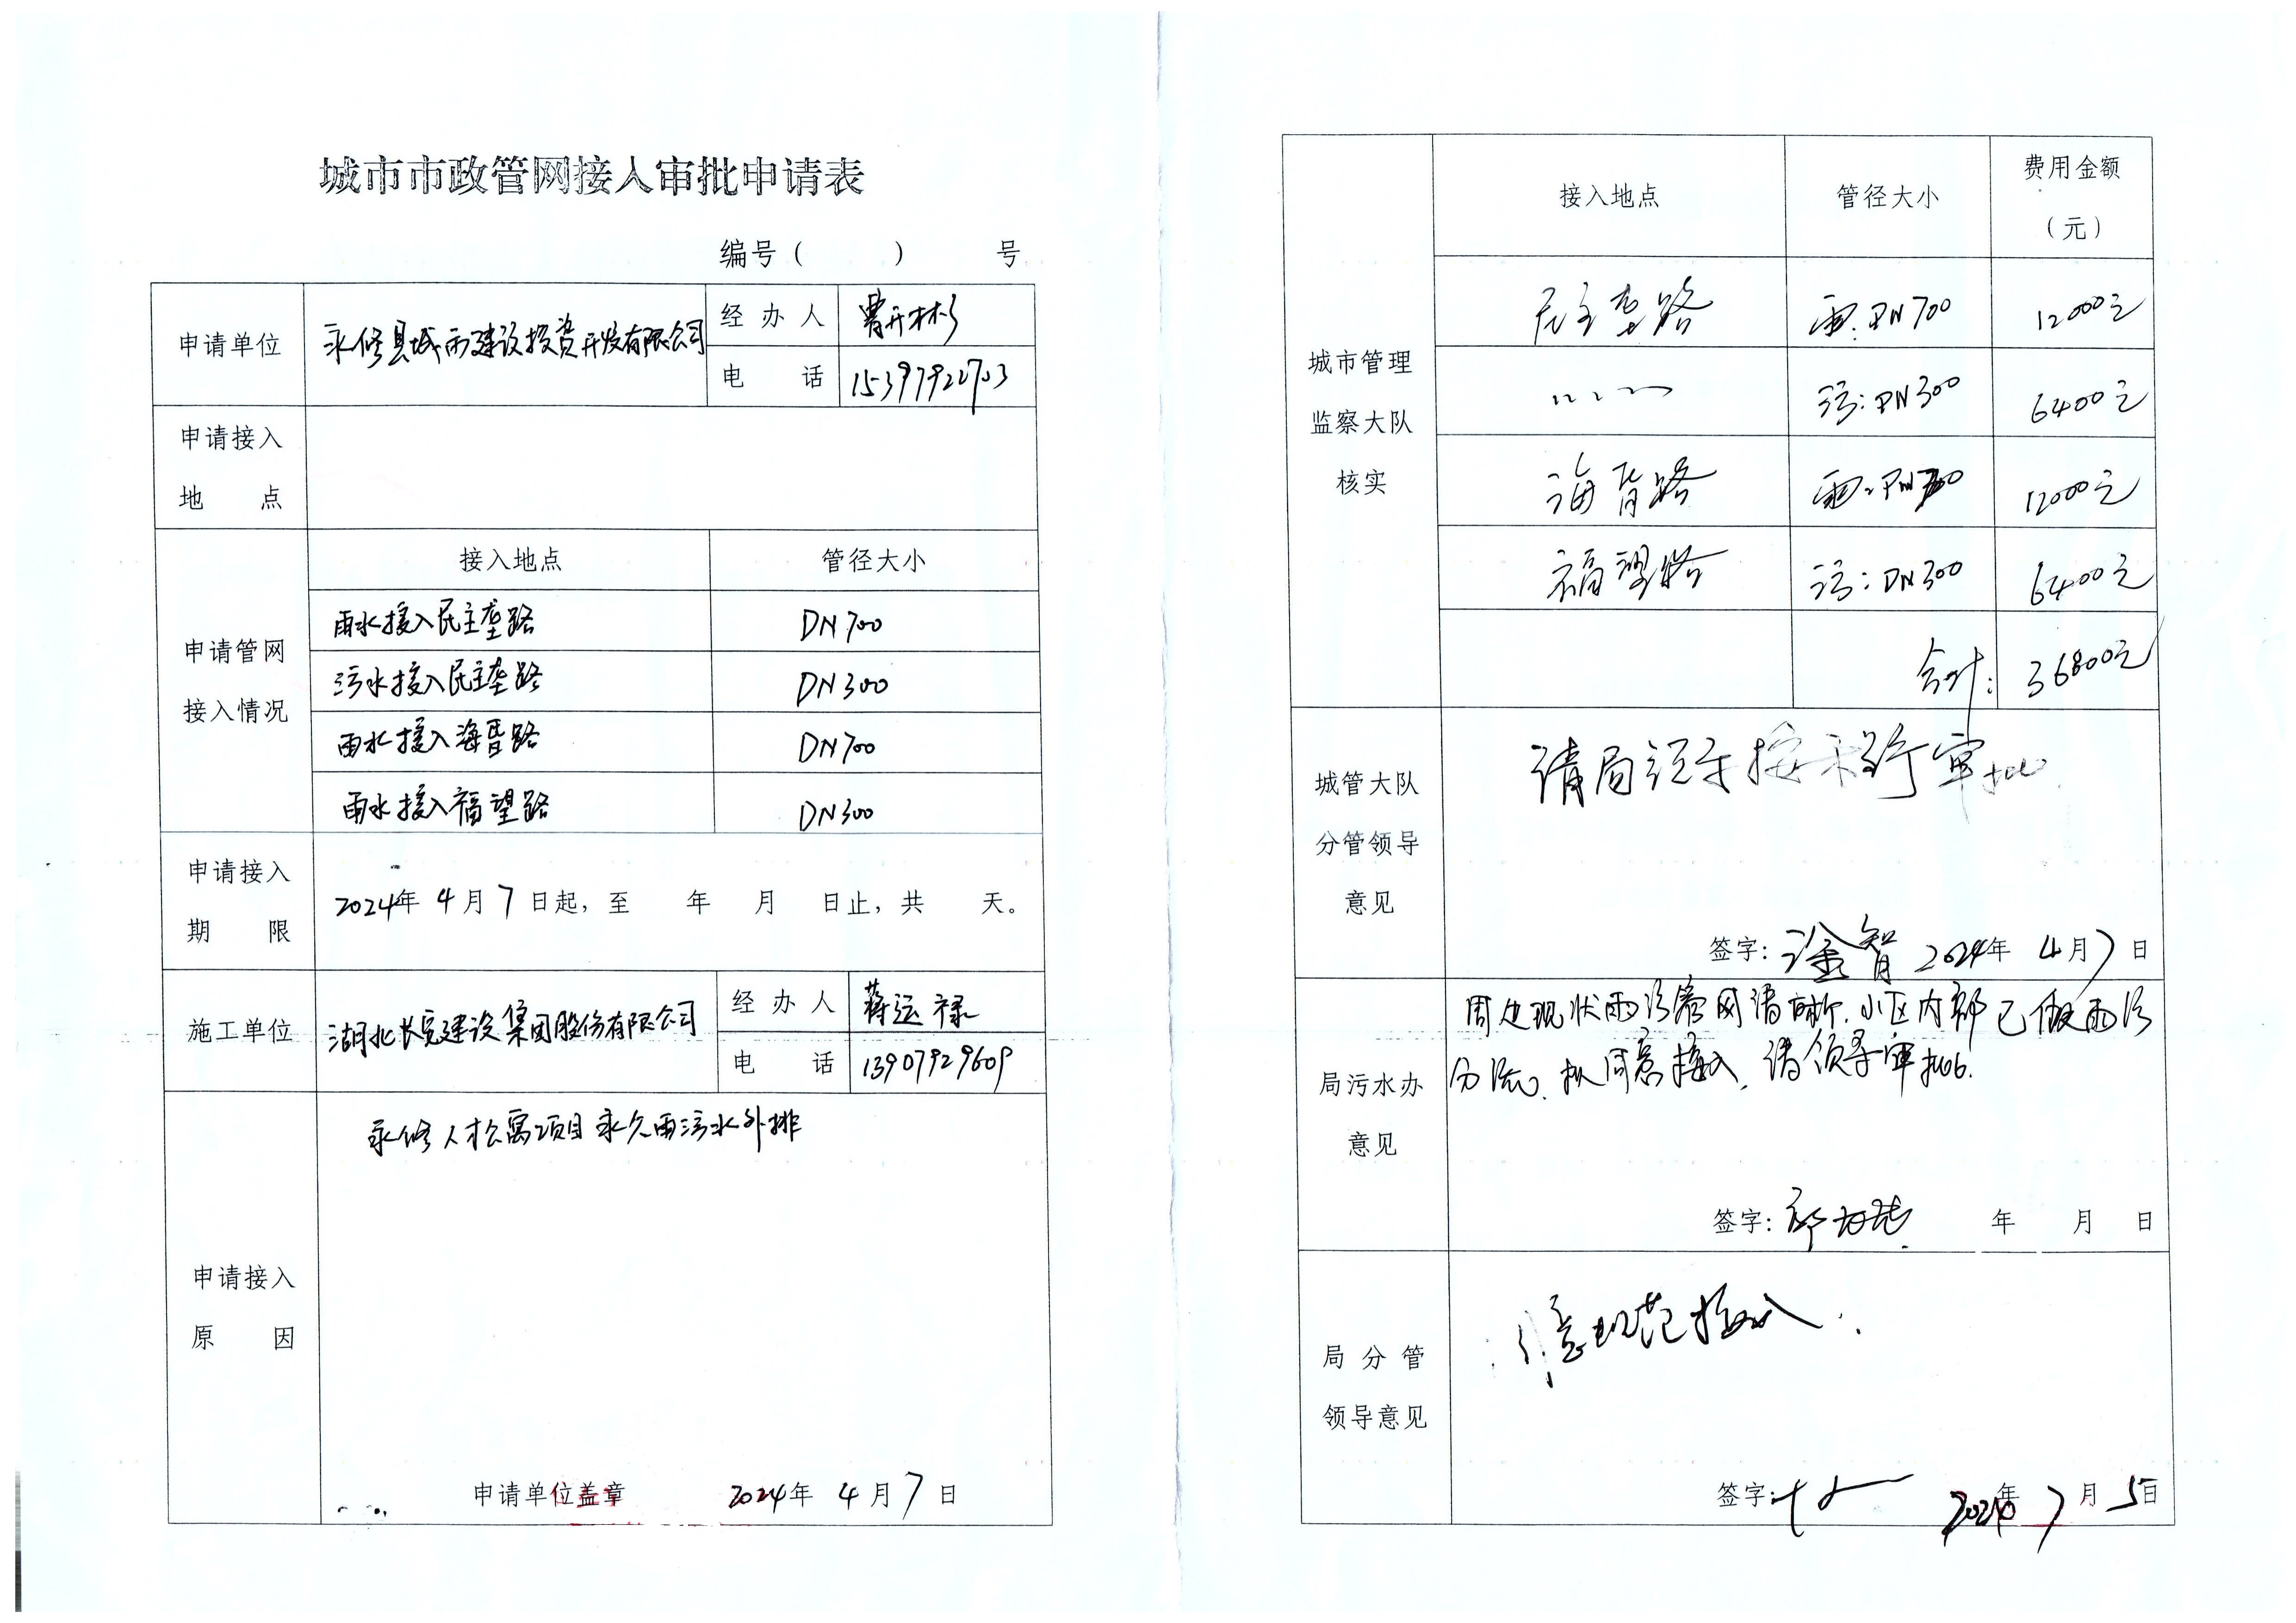 城市市政管网接入审批申请表
编号（　　　）　　　号
申请单位 永修县城市建设投资开发有限公司 经办人 曹开彬
电话
申请接入地点
申请管网接入情况 接入地点 管径大小
雨水接入民主垄路 DN700
污水接入民主垄路 DN300
雨水接入海昏路 DN700
雨水接入福望路 DN300
申请接入期限 2024年 4月 7日起，至　年　月　日止，共　天。
施工单位 湖北长安建设集团股份有限公司 经办人 蒋运禄
电话 13907929609
申请接入原因
永修人才公寓项目永久雨污水外排
申请单位盖章 2024年 4月 7日
城市管理监察大队核实 接入地点 管径大小 费用金额（元）
民主垄路 雨：DN700 12000元
〃 〃 污：DN300 6400元
海昏路 雨：DN700 12000元
福望路 污：DN300 6400元
合计： 36800元
城管大队分管领导意见
请局领导按程序审批
签字： 涂智 2024年 4月7日
局污水办意见
周边现状雨污管网清晰，小区内部已做雨污
分流，拟同意接入，请领导审批。
签字： 年 月 日
局分管领导意见
规范接入.
签字： 7月5日